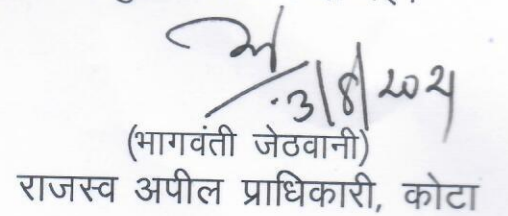 3/8/2021
(भागवंती जेठवानी)
राजस्व अपील प्राधिकारी, कोटा